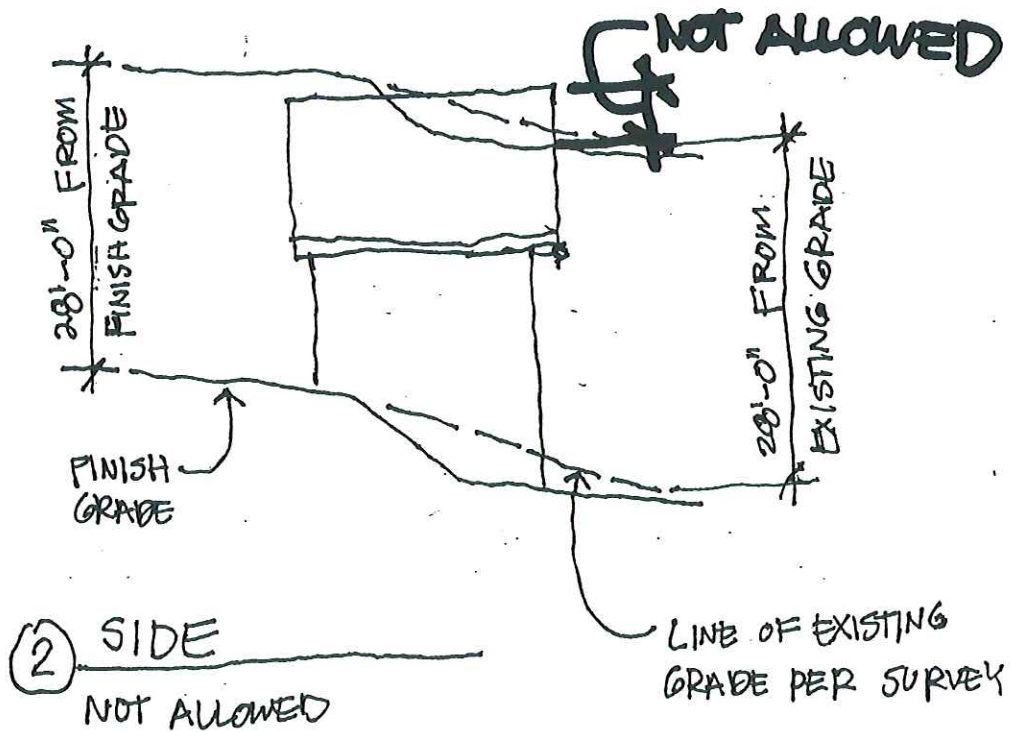 NOT ALLOWED
28'-0" FROM
FINISH GRADE
28'-0" FROM
EXISTING GRADE
FINISH
GRADE
LINE OF EXISTING
GRADE PER SURVEY
2 SIDE
NOT ALLOWED